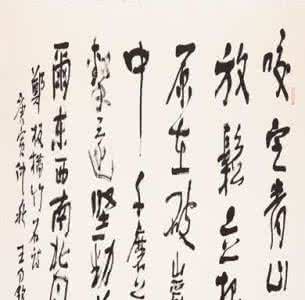 咬定青山
放鬆立根
原在破
中千磨
擊還堅勁
爾東西南北風
鄭板橋竹石詩
庚寅仲秋王